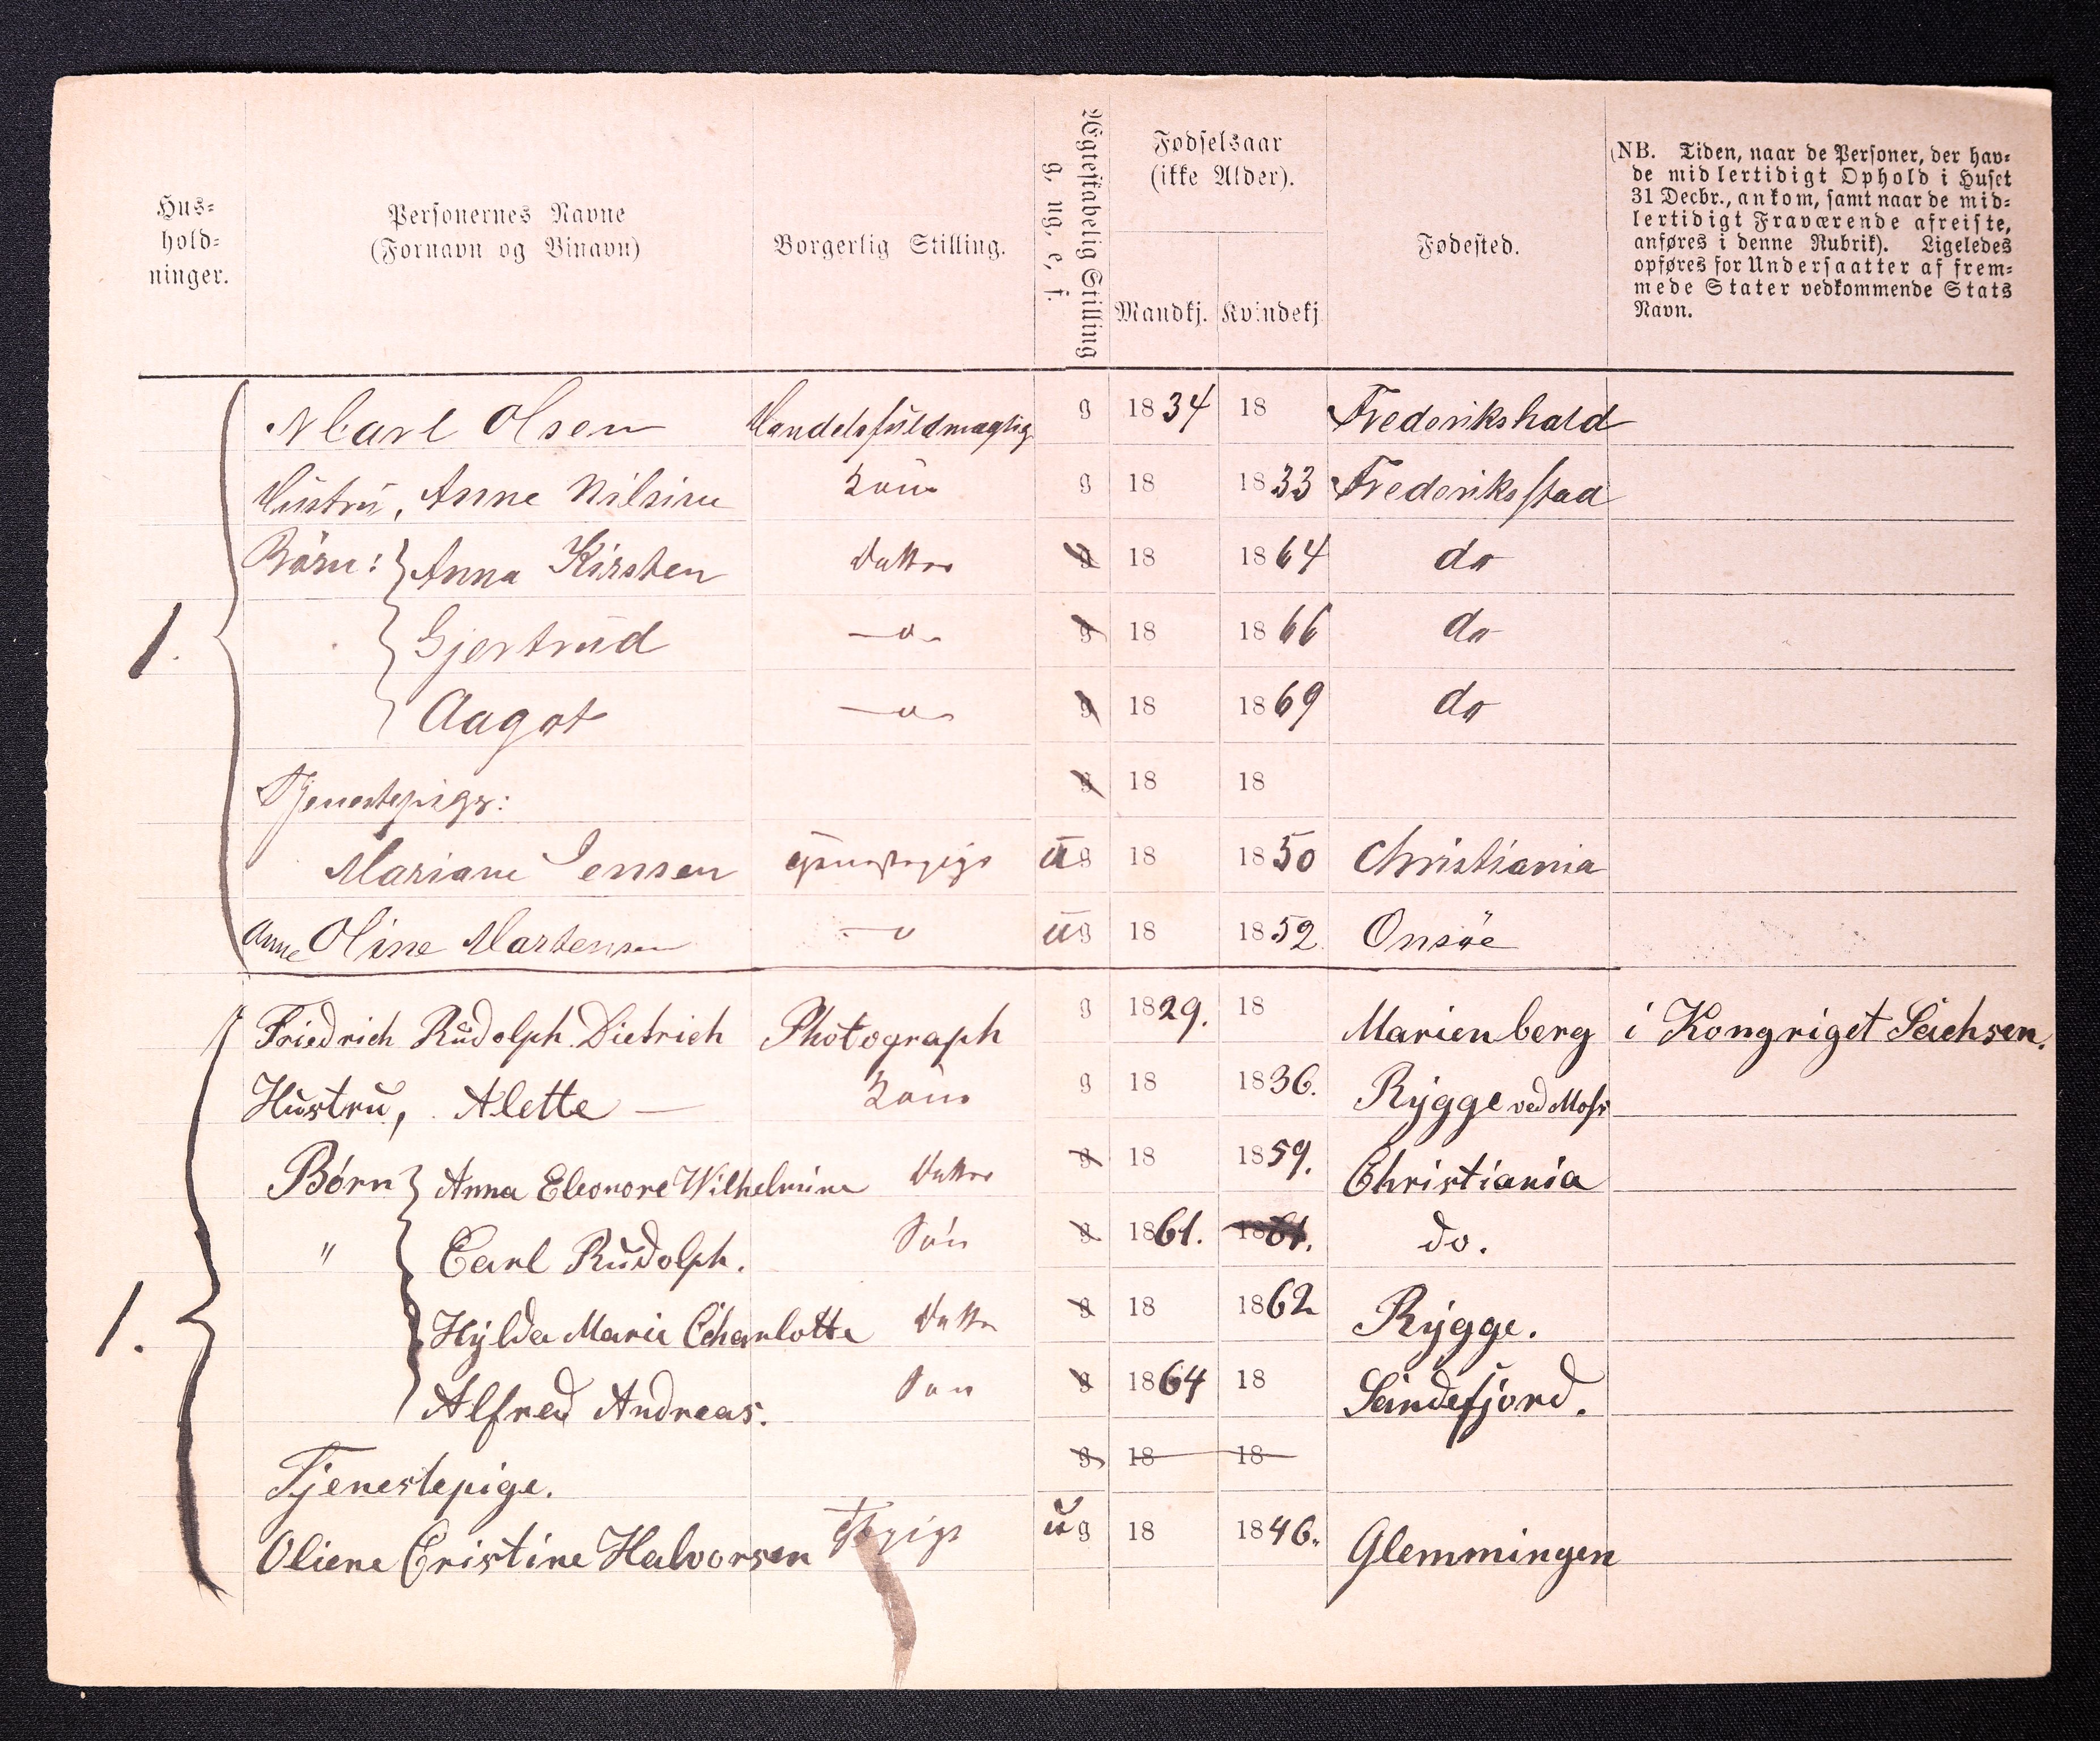 Hus-
hold-
ninger.
Personernes Navne
(Fornavn og Binavn)
Borgerlig Stilling.
Ægteskabelig Stilling
g, ug, e, f.
Fødselsaar
(ikke Alder).
Mandkj. Kvindekj
Fødested.
(NB. Tiden, naar de Personer, der hav-
de midlertidigt Ophold i Huset
31 Decbr., ankom, samt naar de mid-
lertidigt Fraværende afreiste,
anføres i denne Rubrik). Ligeledes
opføres for Undersaatter af frem-
mede Stater vedkommende Stats
Navn.
1.
Olsen Handelsfuldmægtig g 1834 18 Frederikshald
Hustru, Anne Nilsine Kone g 18 1833 Frederiksstad
Börn: Anna Kirsten Datter g 18 1864 do
Gjertrud —o— g 18 1866 do
Aagot —o— g 18 1869 do
Tjenestepiger: g 18 18
Mariane Jensen Tjenestepige ug 18 1850 Christiania
Anne Oline Martensen —o ug 18 1852 Onsöe
1.
Friedrich Rudolph Dietrich Photograph g 1829. 18 Marienberg i Kongriget Sachsen.
Hustru, Alette — Kone g 18 1836. Rygge ved Moss
Børn Anna Eleonore Wilhelmine Datter g 18 1859. Christiania
" Carl Rudolph. Søn g 1861. 1861. do.
Hylda Marie Charlotte Datter g 18 1862 Rygge.
Alfred Andreas. Søn g 1864 18 Sandefjord.
Tjenestepige. g 18 18
Oliene Cristine Halvorsen Tjpige ug 18 1846. Glemmingen